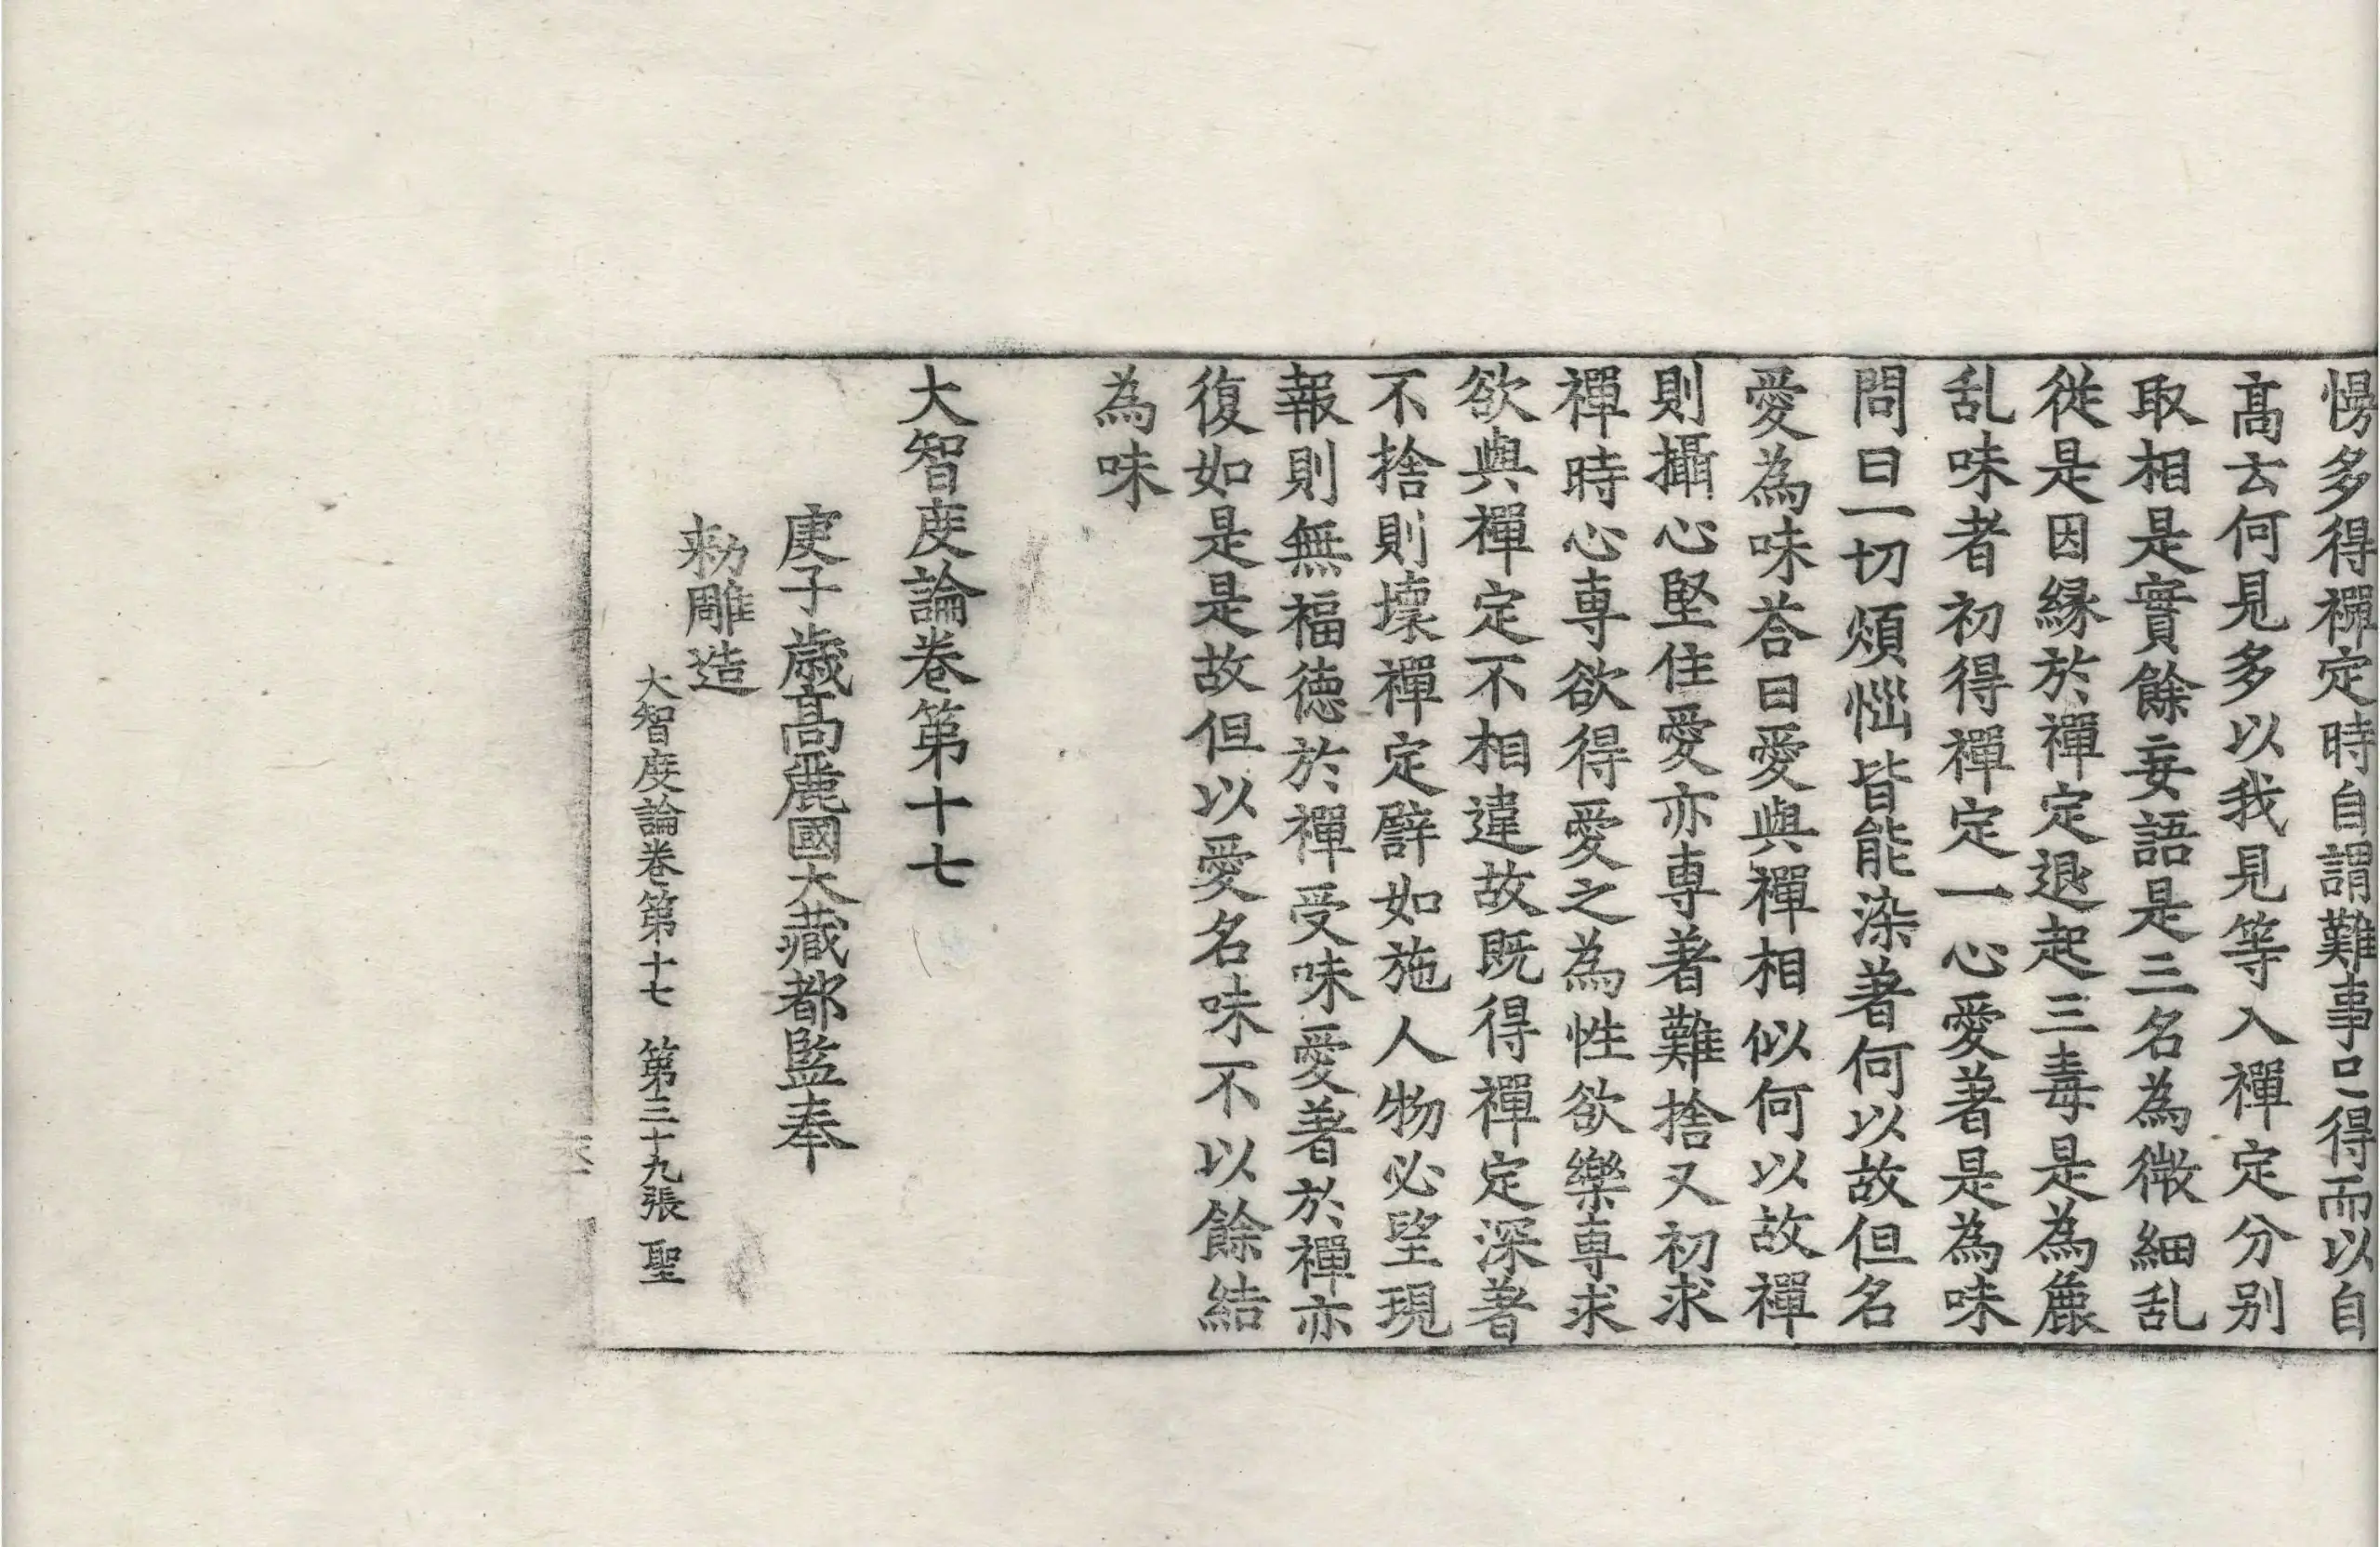 慢多得禪定時自謂難事已得而以自
高去何見多以我見等入禪定分别
取相是實餘妄語是三名為微細乱
從是因緣於禪定退起三毒是為麁
乱味者初得禪定一心愛著是為味
問曰一切煩惱皆能染著何以故但名
愛為味荅曰愛與禪相似何以故禪
則攝心堅住愛亦専著難捨又初求
禪時心専欲得愛之為性欲樂専求
欲與禪定不相違故既得禪定深著
不捨則壞禪定譬如施人物必望現
報則無福德於禪受味愛著於禪亦
復如是是故但以愛名味不以餘結
為味
大智度論卷第十七
庚子歲高麗國大藏都監奉
勑雕造
大智度論卷第十七 第三十九張 聖